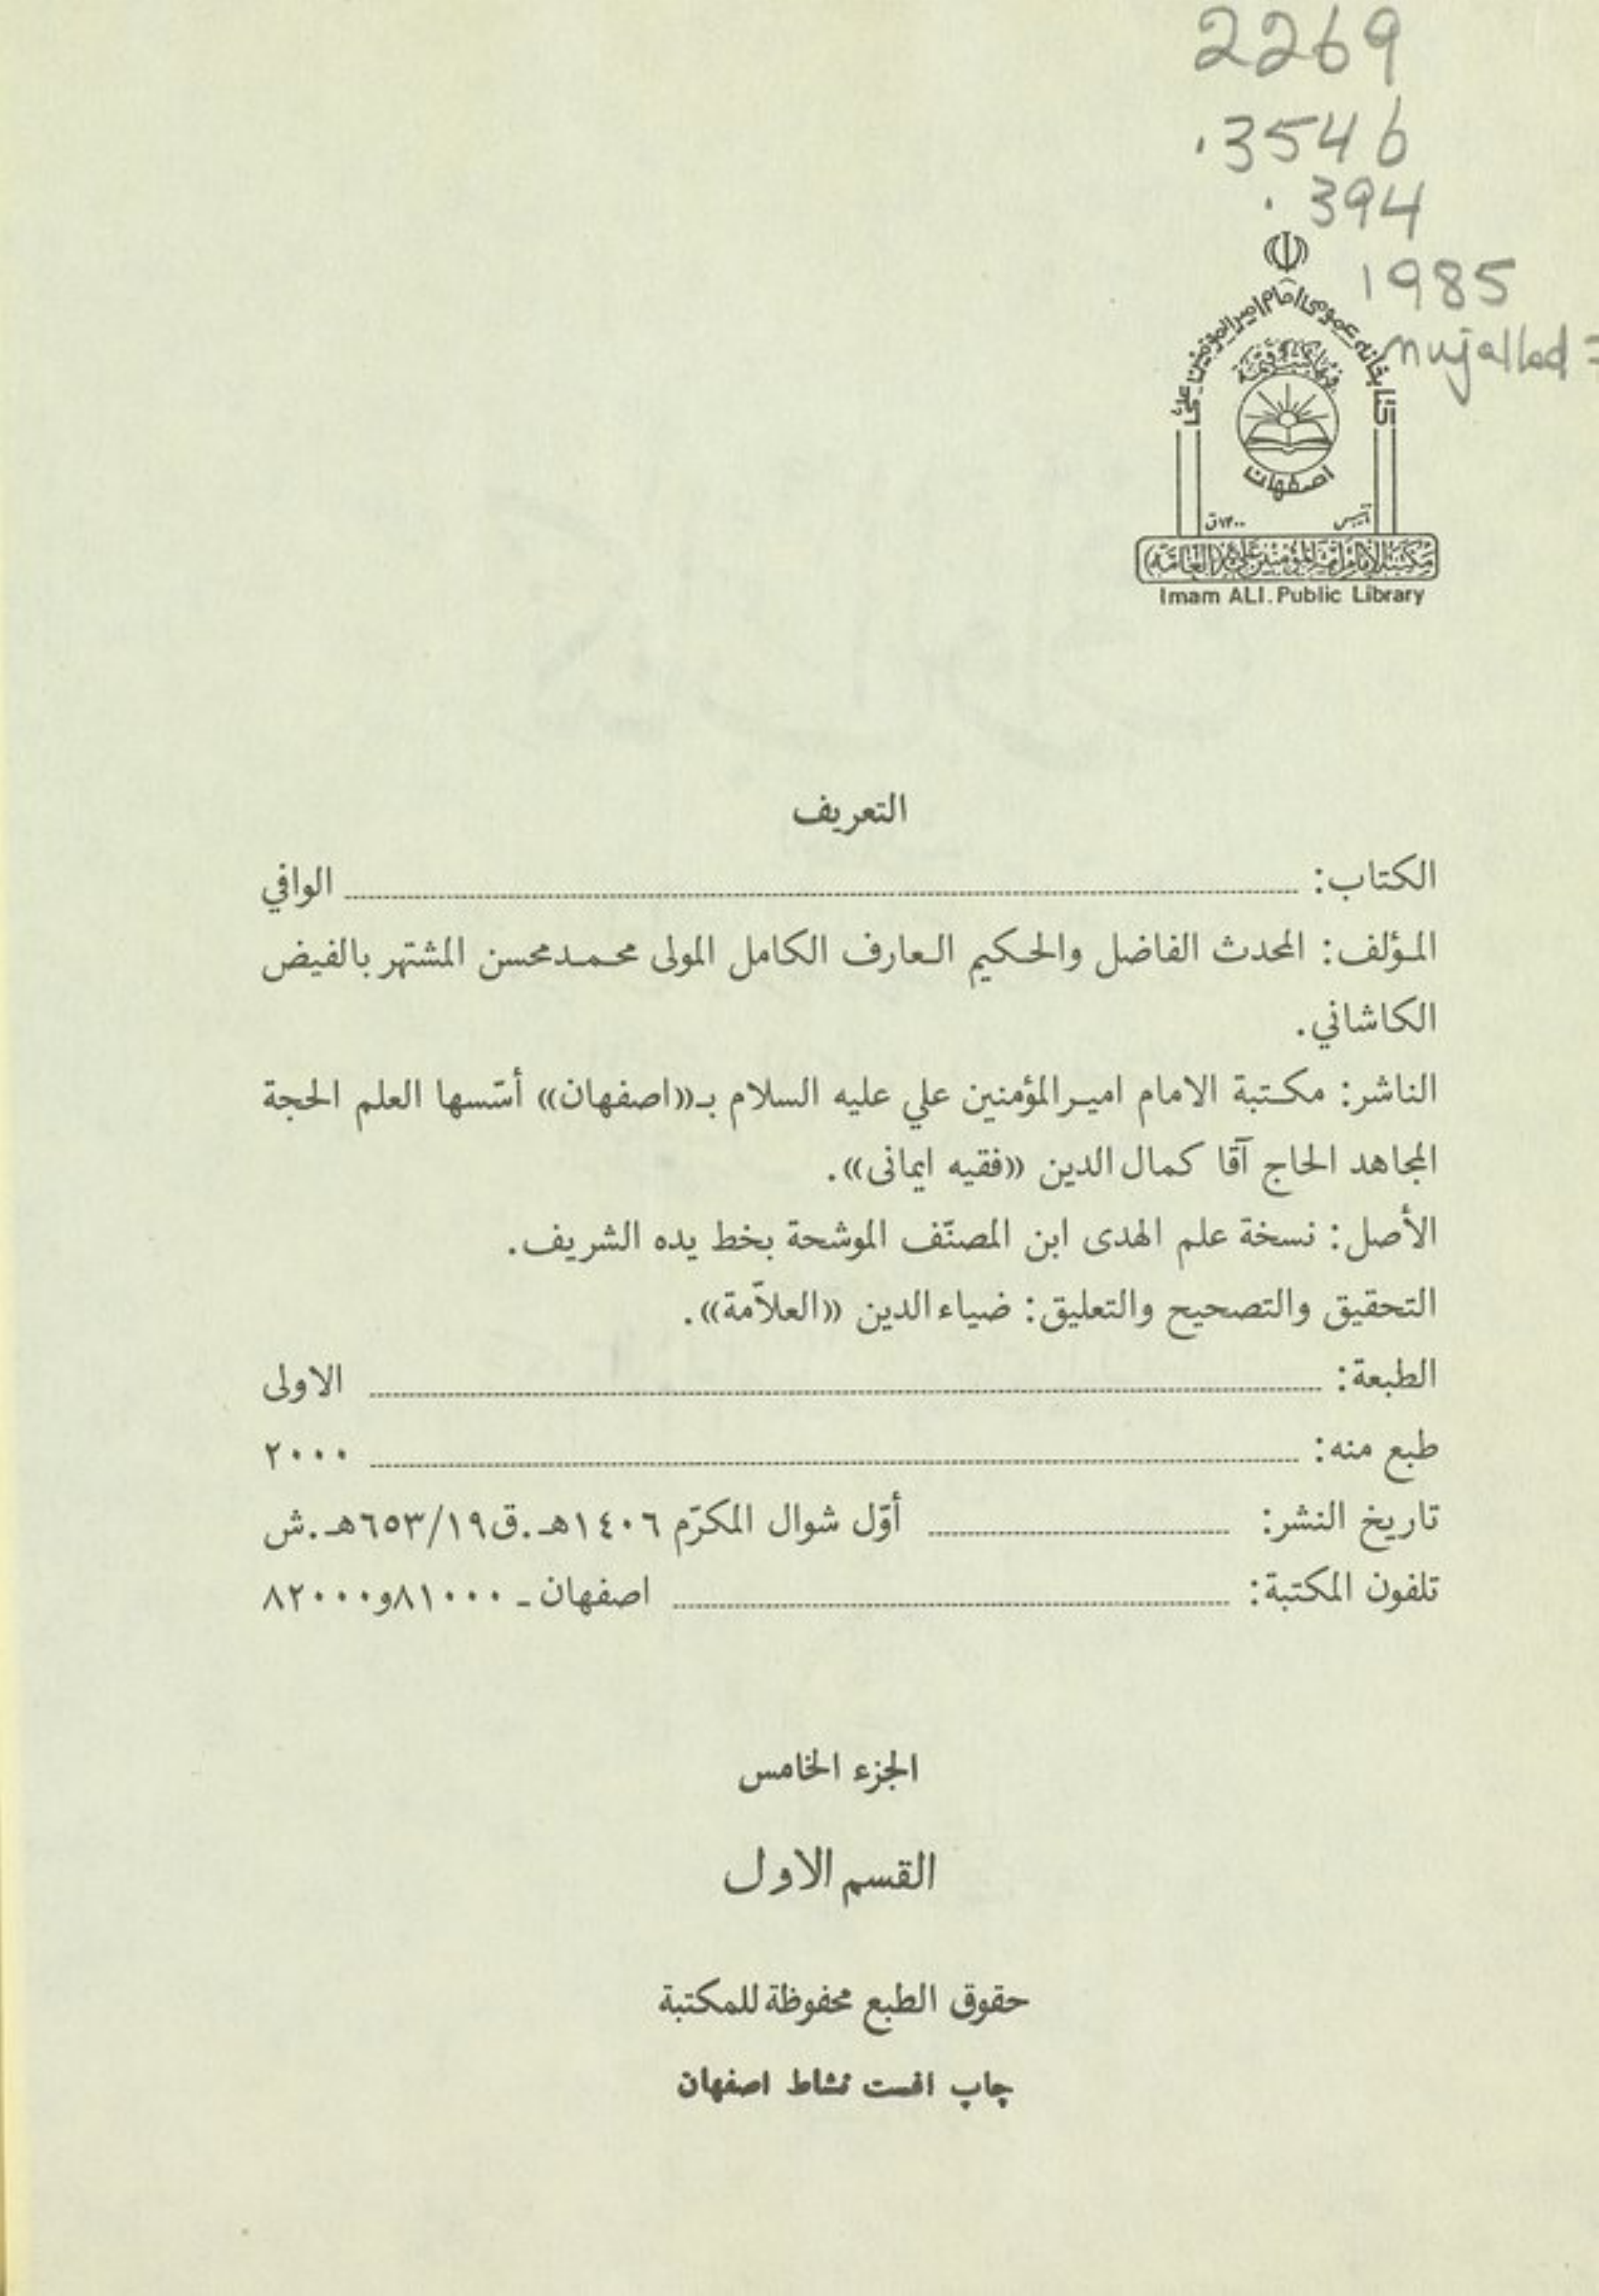 2269
.3546
.394
1985
mujallad =
كتابخانه عمومى امام اميرالمؤمنين على
اصفهان
تأسيس ١٤٠٠ق
Imam ALI. Public Library
التعريف
الكتاب: الوافي
المؤلف: المحدث الفاضل والحكيم العارف الكامل المولى محمدمحسن المشتهر بالفيض
الكاشاني.
الناشر: مكتبة الامام اميرالمؤمنين علي عليه السلام بـ«اصفهان» أسّسها العلم الحجة
المجاهد الحاج آقا كمال الدين «فقيه ايمانى».
الأصل: نسخة علم الهدى ابن المصنّف الموشحة بخط يده الشريف.
التحقيق والتصحيح والتعليق: ضياء الدين «العلاّمة».
الطبعة: الاولى
طبع منه: ٢٠٠٠
تاريخ النشر: أوّل شوال المكرّم ١٤٠٦هـ.ق ١٩/٣/٦٥هـ.ش
تلفون المكتبة: اصفهان ـ ٨١٠٠٠و٨٢٠٠٠
الجزء الخامس
القسم الاول
حقوق الطبع محفوظة للمكتبة
چاپ افست نشاط اصفهان